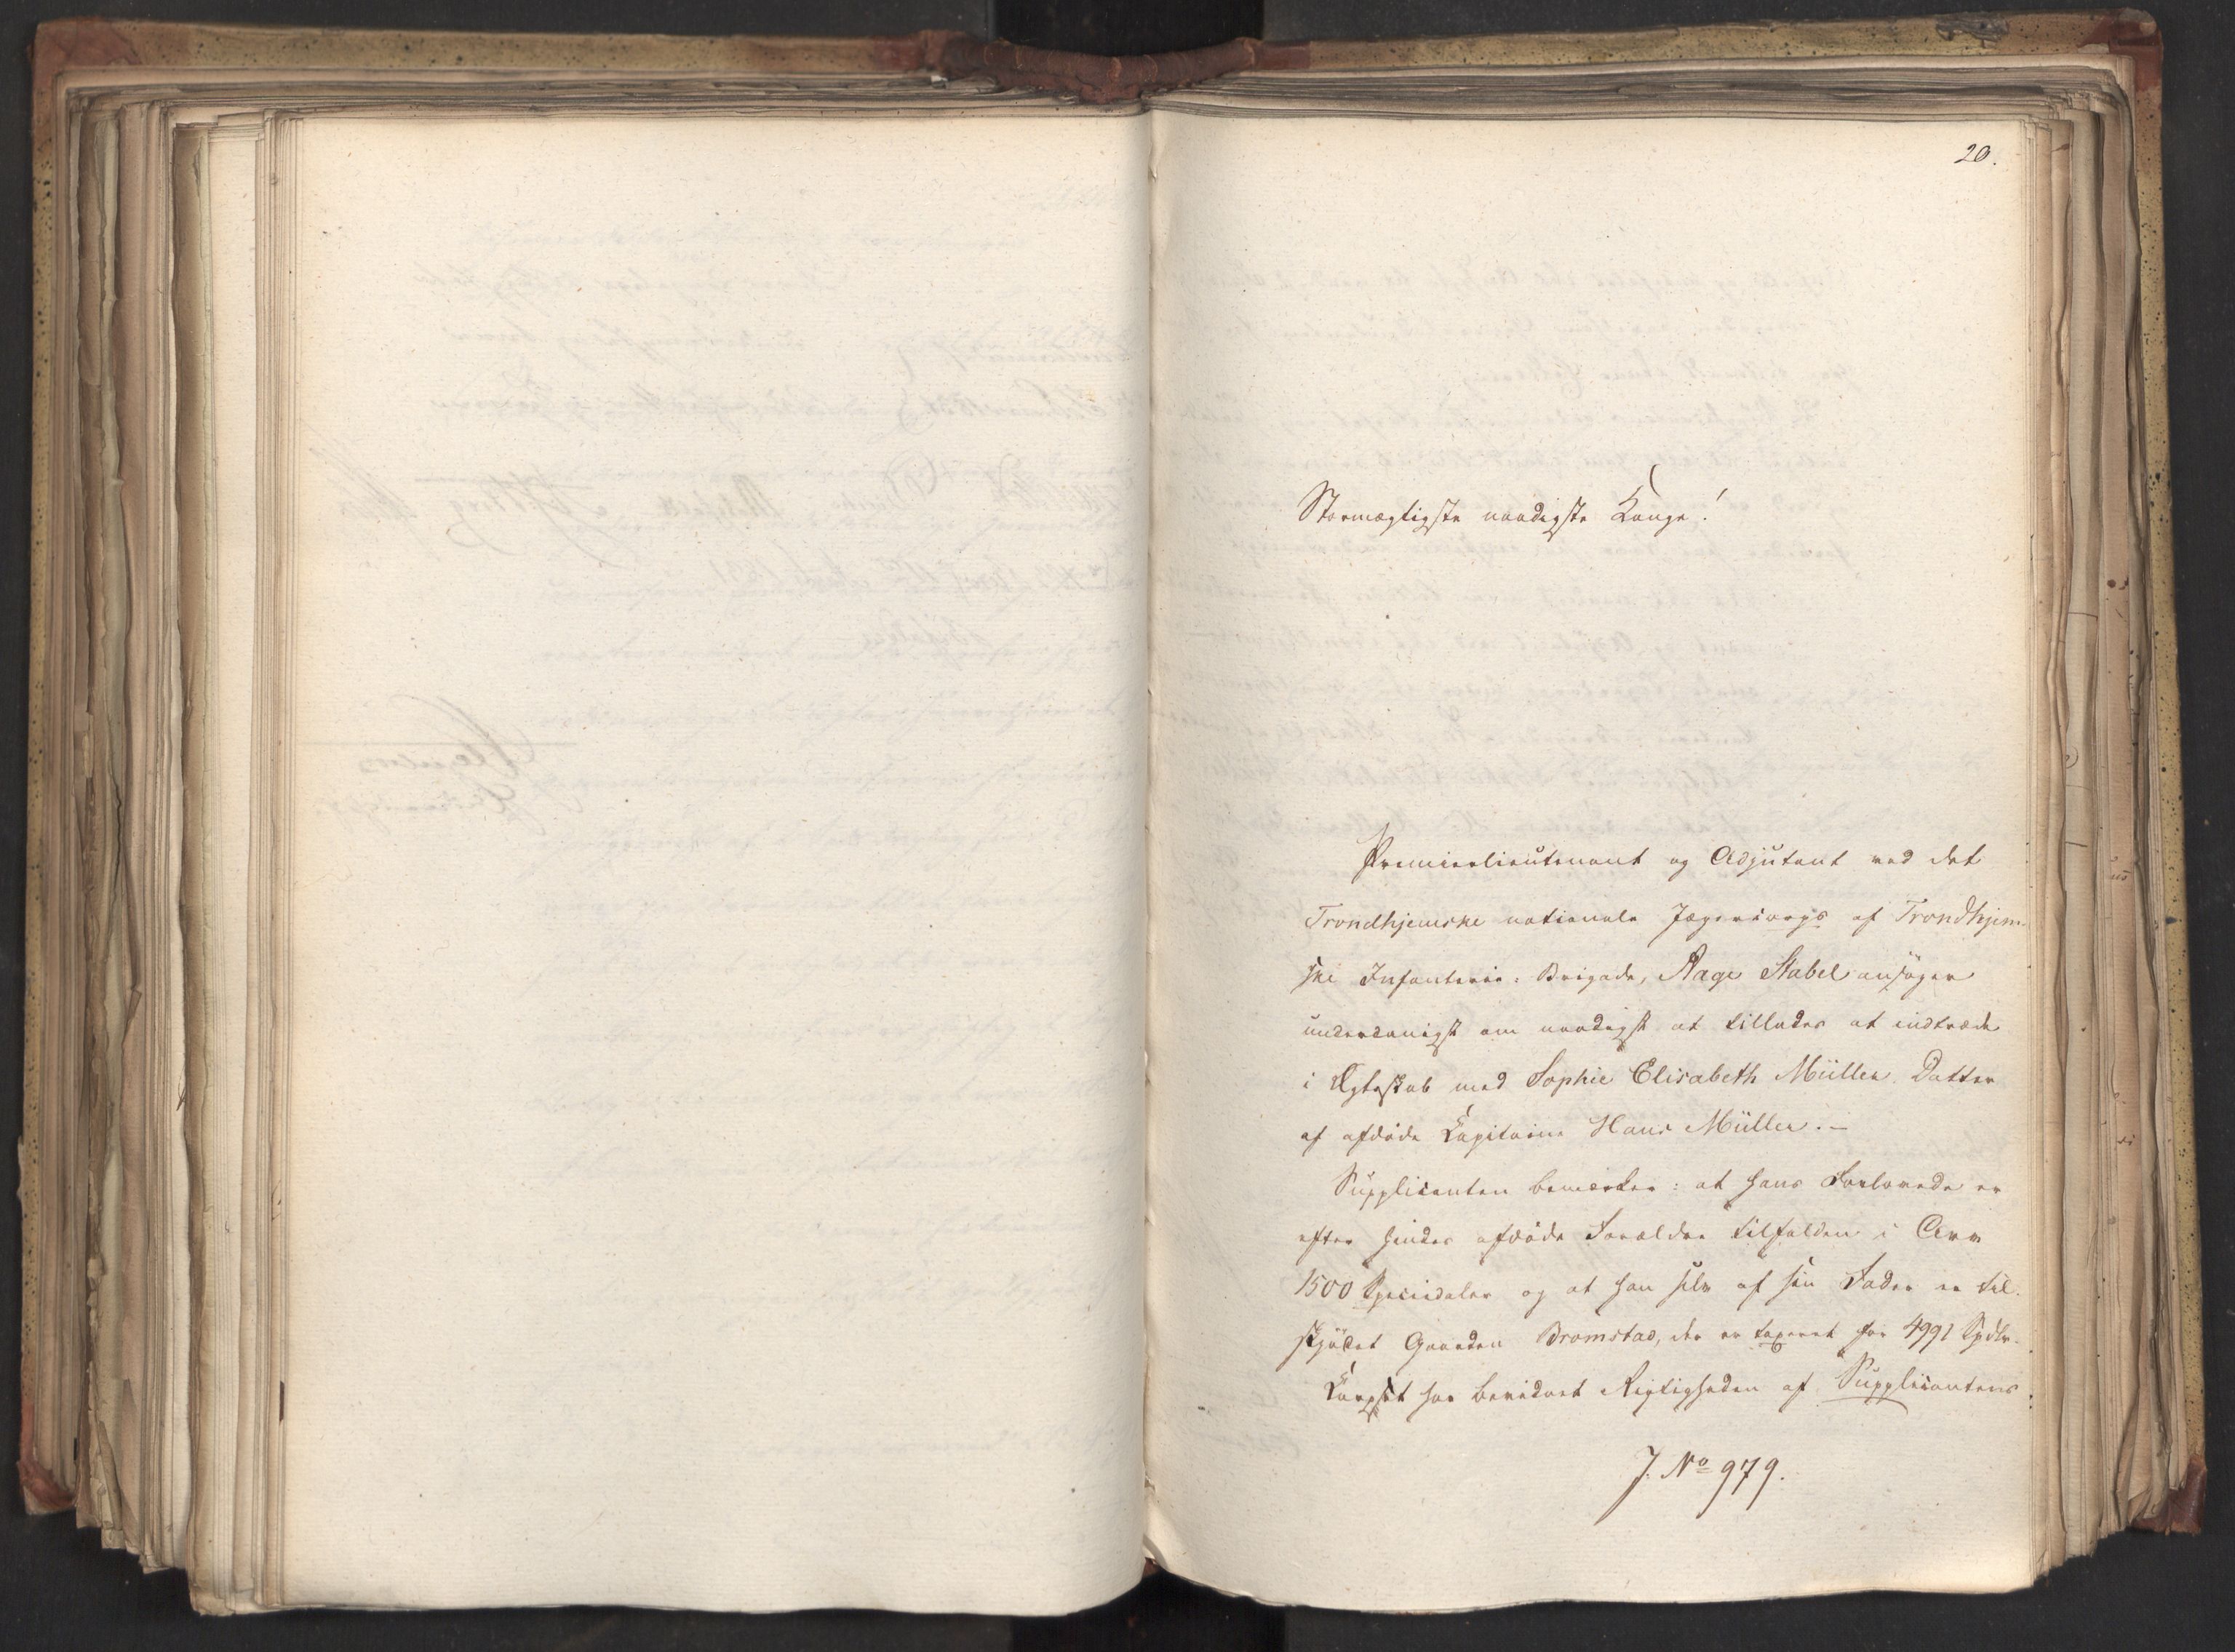 20.
Stormægtigste naadigste Konge!
Premierlieutenant og Adjutant ved det
Trondhjemske nationale Jægercorps af Trondhjem-
ske Infanterie-Brigade, Aage Stabel ansøger
underdanigst om naadigst at tillades at indtræde
i Ægteskab med Sophie Elisabeth Müller. Datter
af afdøde Kapitaine Hans Müller.–
Supplicanten bemærker: at hans Forlovede er
efter hendes afdøde Forældre tilfalden i Arv
1500 Speciedaler og at han selv af sin Fader er til-
skjødet Gaarden Bromstad, der er taxeret for 4991 Spdlr.
Korpset har bevidnet Rigtigheden af Supplicantens
J. No 979.